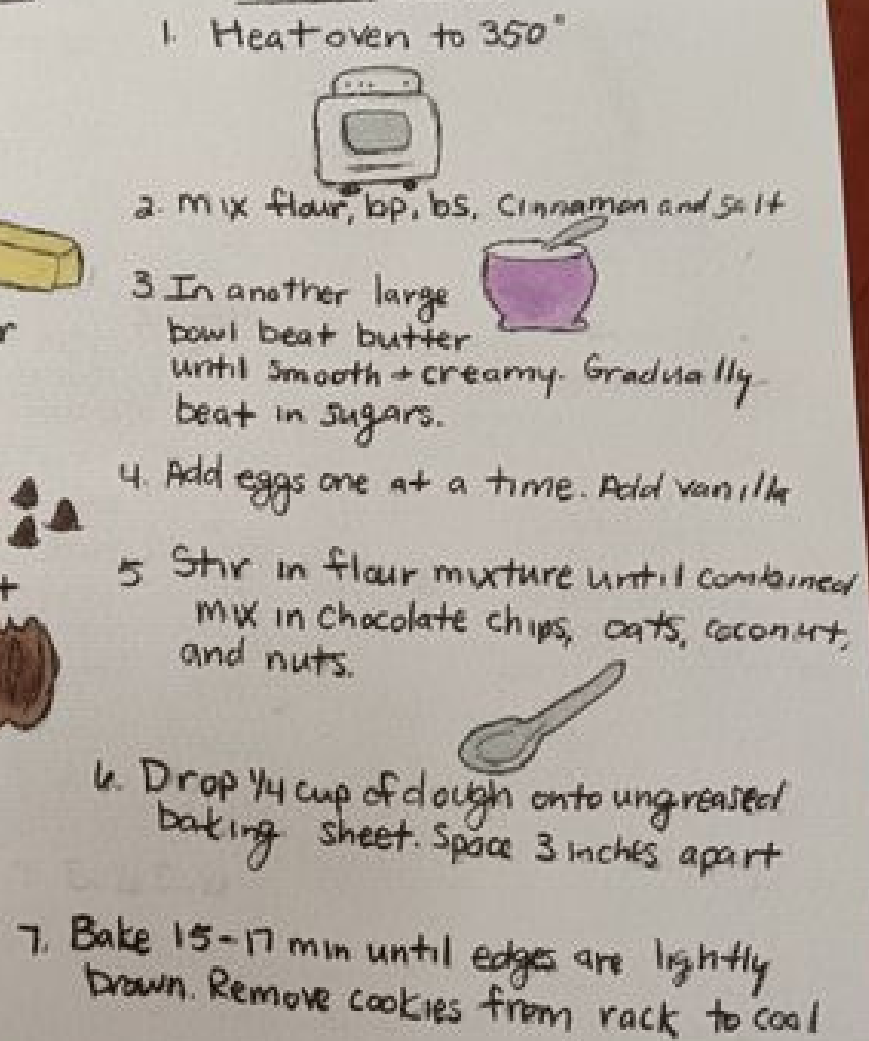 1. Heat oven to 350°
2. mix flour, bp, bs, Cinnamon and salt
3 In another large
bowl beat butter
until smooth + creamy. Gradually
beat in sugars.
4. Add eggs one at a time. Add vanilla
5 Stir in flour mixture until combined
mix in chocolate chips, oats, coconut,
and nuts.
6. Drop 1/4 cup of dough onto ungreased
baking sheet. Space 3 inches apart
7. Bake 15-17 min until edges are lightly
brown. Remove cookies from rack to cool